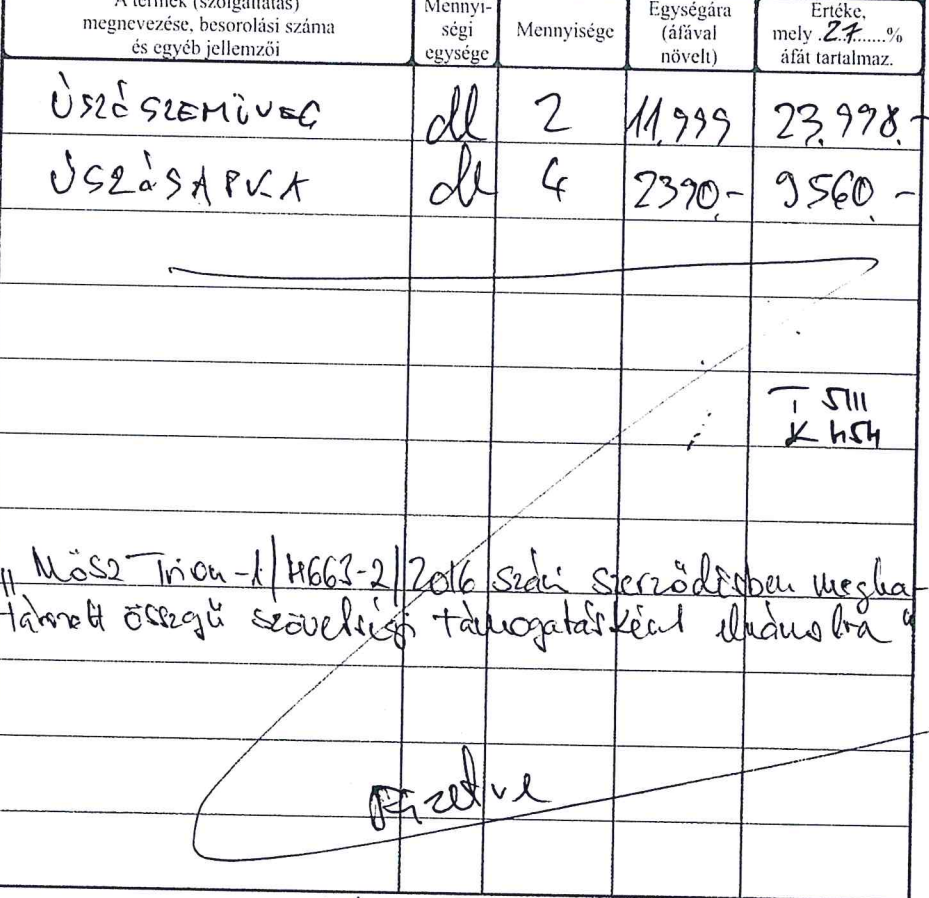 A termék (szolgáltatás)
megnevezése, besorolási száma
és egyéb jellemzői
Mennyi-
ségi
egysége
Mennyisége
Egységára
(áfával
növelt)
Értéke,
mely 27 %
áfát tartalmaz.
ÚSZÓSZEMÜVEG db 2 11.999 23.998.-
ÚSZÓSAPKA db 4 2390.- 9560.-
T 5111
K 454
„MöSZ Trion-1/H663-2/2016 számú szerződésben megha-
tározott összegű szövetségi támogatásként elszámolva"
Fizetve